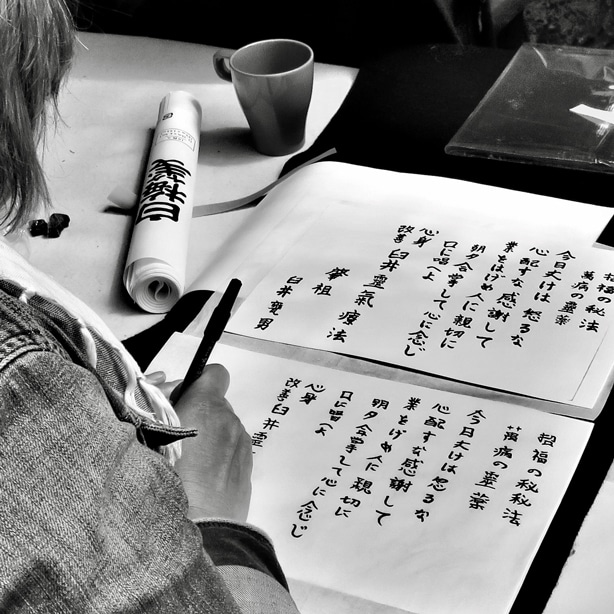 招福の秘法
萬病の靈薬
今日丈けは 怒るな
心配すな 感謝して
業をはげめ 人に親切に
朝夕合掌して 心に念じ
口に唱へよ
心身
改善 臼井靈氣療法
肇祖
臼井甕男
招福の秘秘法
萬病の靈薬
今日丈けは 怒るな
心配すな 感謝して
業をはげめ 人に親切に
朝夕合掌して 心に念じ
口に唱へよ
心身
改善 臼井靈